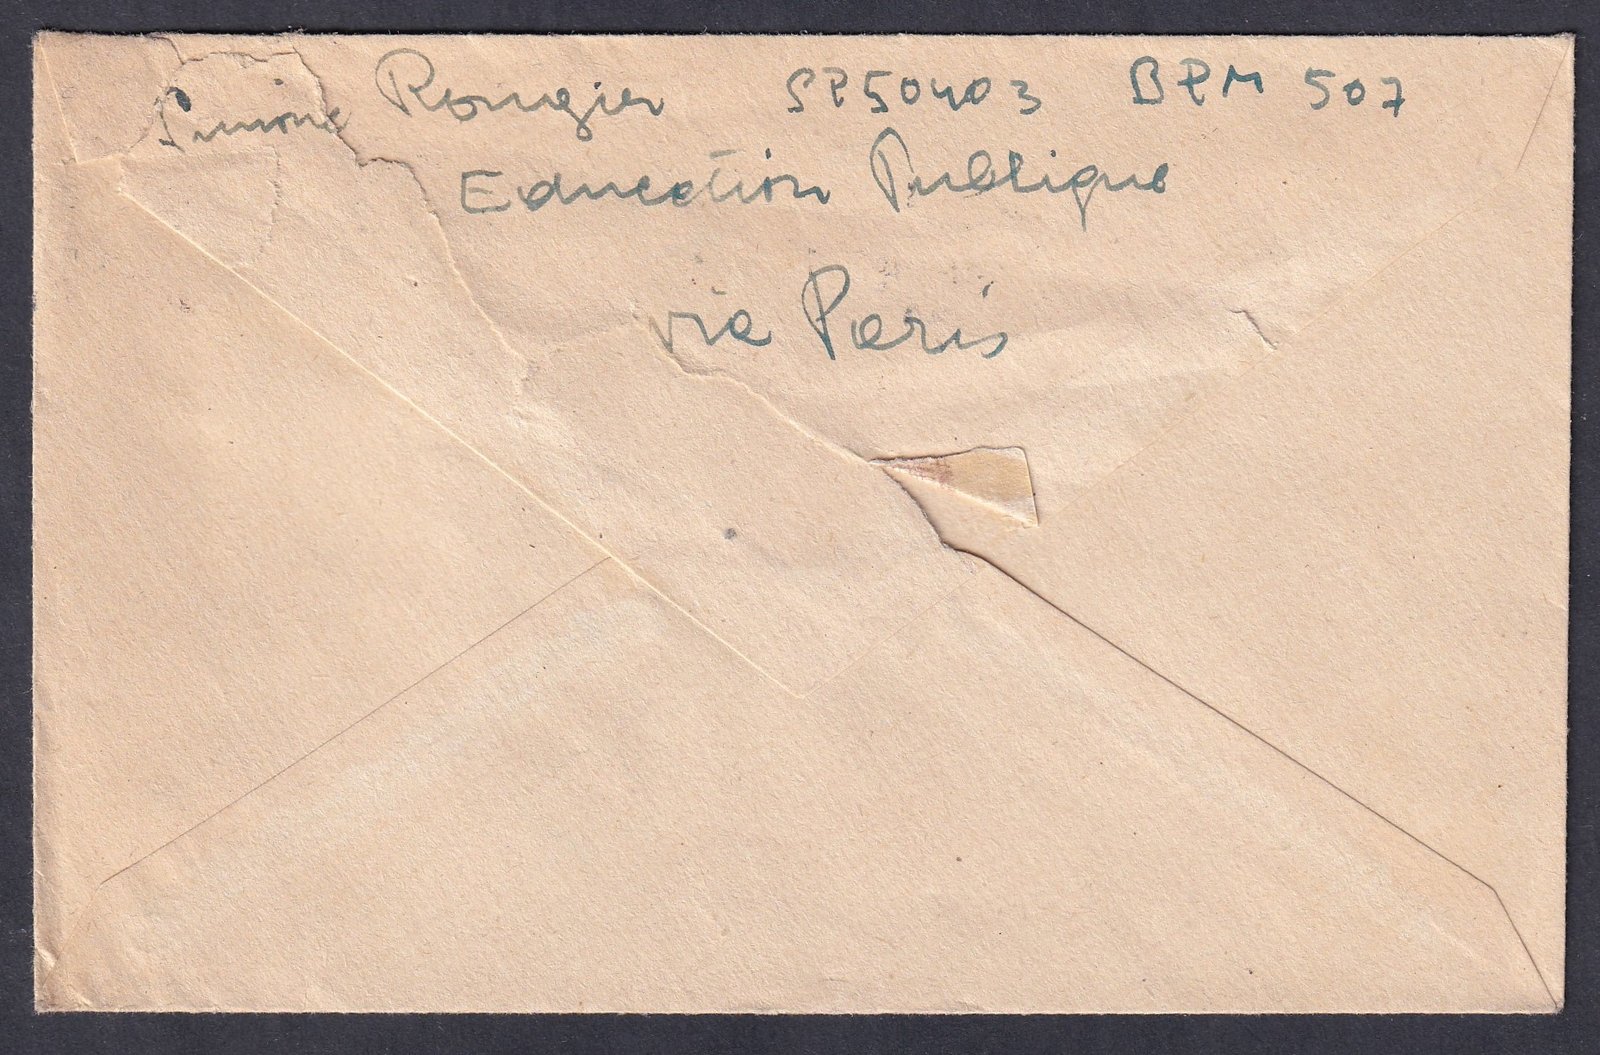 Simone Rougier SP50403 BPM 507
Education Publique
via Paris